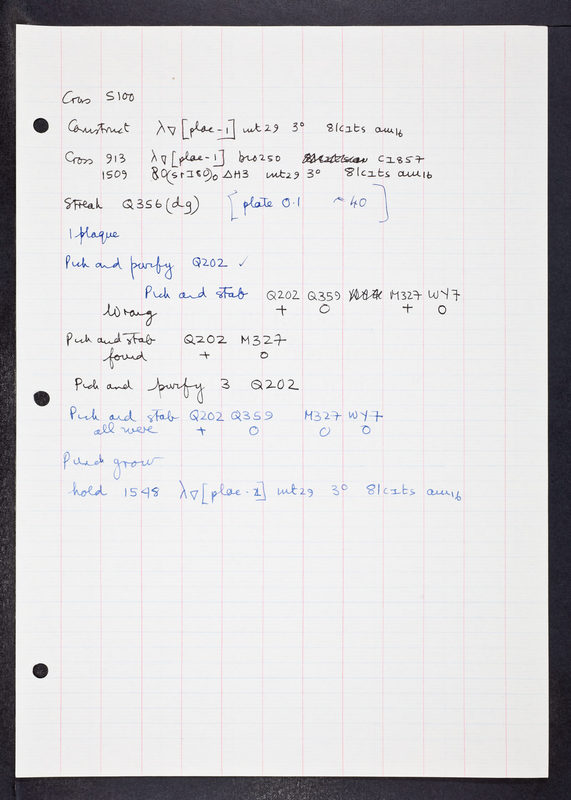 Cross S100
Construct λ∇[plac-1] int29 3° 8/cIts am16
Cross 913 λ∇[plac-1] bio250 CI857
1509 80(srI80)0 ΔH3 int29 3° 8/cIts am16
Streak Q356(dg) [plate 0.1 ~40]
1 plaque
Pick and purify Q202 ✓
Pick and stab Q202 Q359 M327 WY7
Wrong + 0 + 0
Pick and stab Q202 M327
found + 0
Pick and purify 3 Q202
Pick and stab Q202 Q359 M327 WY7
all were + 0 0 0
grow
hold 1548 λ∇[plac-1] int29 3° 8/cIts am16